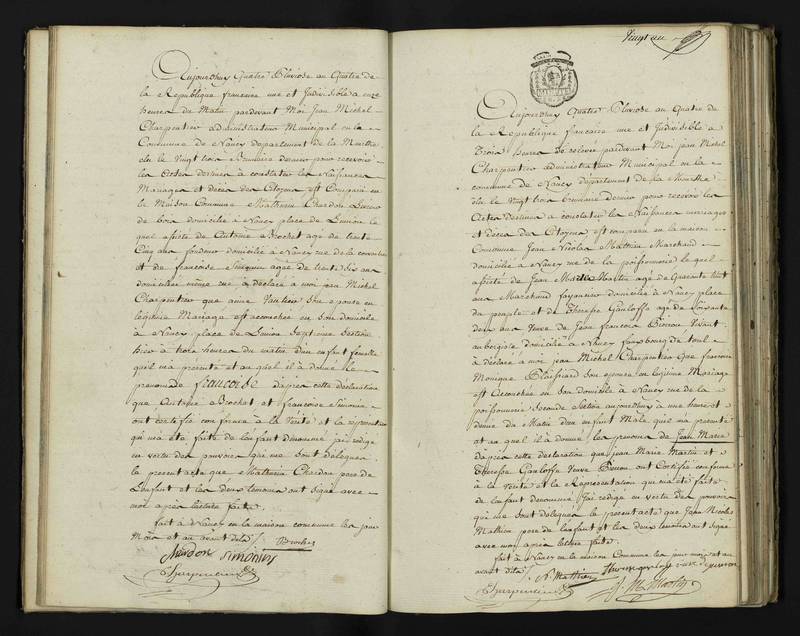 Aujourdhuy Quatre Pluviose an Quatre de
la Republique francaise une et Indivisible a onze
heures du Matin pardevant Moi Jean Michel
Charpentier administrateur Municipal en la
Commune de Nancy departement de la Meurthe
élu le Vingt trois Brumaire dernier pour recevoir
les Actes destinés à constater les Naissances
Mariages et décès des Citoyens est Comparu en
la Maison Commune Mathurin Chardon
de bois domicilié à Nancy place de Lunion le
quel assisté de Antoine Brochet agé de trente
Cinq ans domicilié à Nancy rue de la
et de francoise agée de trente six ans
domiciliée même rue a déclaré à moi Jean Michel
Charpentier que anne son epouse en
légitime Mariage est accouchée en son domicile
à Nancy place de Lunion Septieme Section
hier à trois heures du matin dun enfant femelle
quil ma présenté et auquel il à donné le
prenom de francoise dapres cette déclaration
que Antoine Brochet et francoise Simonin
ont certifié conforme à la Vérité et la représentation
qui ma été faite de lenfant dénommé jai rédigé
en vertu des pouvoirs qui me sont délégués
le présent acte que Mathurin Chardon pere de
Lenfant et les deux temoins ont signé avec
moi après lecture faite
fait à Nancy en la maison commune les jour
Mois et an avant dits /. Brochet
Chardon Simonin
Charpentier
Vingt un
Aujourdhuy Quatre Pluviose an Quatre de
la Republique francaise une et Indivisible a
Trois heures de relevée pardevant Moi jean Michel
Charpentier administrateur Municipal en la
commune de Nancy département de la Meurthe
élu le Vingt trois brumaire dernier pour recevoir les
Actes destinés a constater les Naissances mariages
et décès des Citoyens est comparu en la maison
Commune Jean Nicolas Mathieu Marchand
domicilié a Nancy rue de la poissonnerie le quel
assisté de Jean Marie Martin agé de Quarante huit
ans Marchand fayancier domicilié à Nancy place
du peuple et de Therese Gauloffe agé de Soixante
deux ans Veuve de Jean francois Vivant
aubergiste domicilié a Nancy fauxbourg de toul
a déclaré a moi jean Michel Charpentier Que francoise
Monique son épouse en légitime Mariage
est Accouchée en son domicile a Nancy rue de la
poissonnerie Seconde Section aujourdhuy à une heure et
demie du Matin dun enfant Mâle quil ma présenté
et au quel il a donné les prenoms de Jean Marie
Dapres cette déclaration que jean Marie Martin et
Therese Gauloffe Veuve ont Certifié conforme
à la Vérité et la Représentation qui ma été faite
de lenfant denommé Jai redigé en vertu des pouvoirs
qui me sont délégués le présent acte que Jean Nicolas
Mathieu pere de lenfant et les deux temoins ont signé
avec moi après lecture faite
fait à Nancy en la maison Commune les jour mois et an
avant dits /. N. Mathieu
Charpentier J. M. Martin